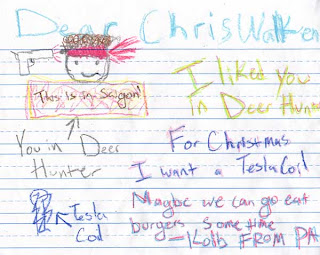 Dear Chris Walken
This is in Saigon!
I liked you
in Deer Hunter
You in Deer
Hunter
For Christmas
I want a Tesla Coil
Tesla
Coil
Maybe we can go eat
burgers some time
FROM PA